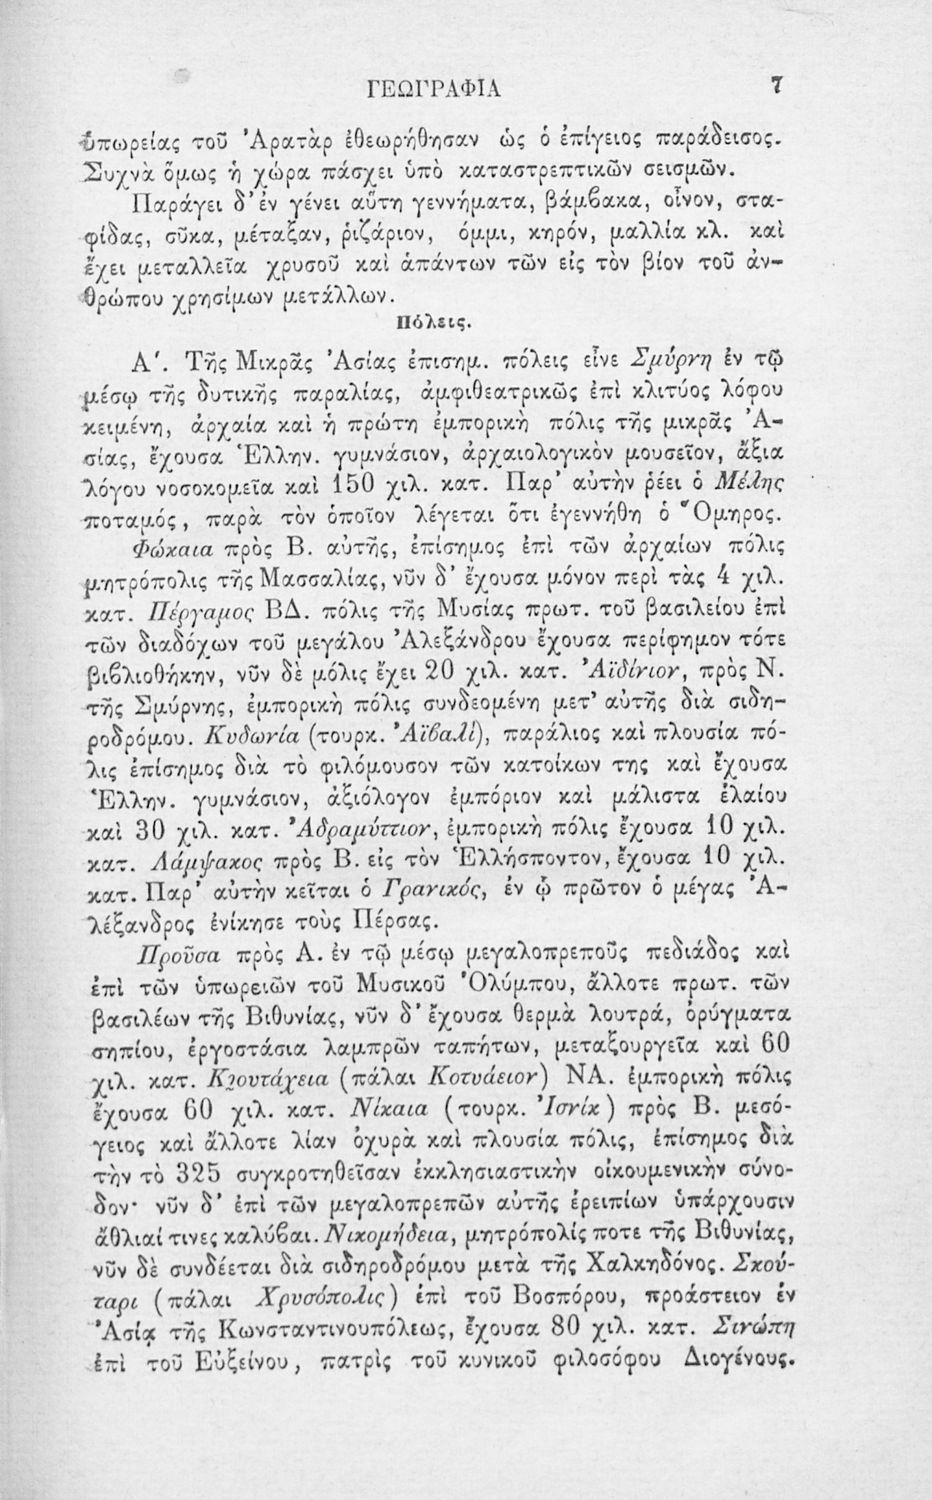 ΓΕΩΓΡΑΦΙΑ 7
ὑπωρείας τοῦ Ἀρατὰρ ἐθεωρήθησαν ὡς ὁ ἐπίγειος παράδεισος.
Συχνὰ ὅμως ἡ χώρα πάσχει ὑπὸ καταστρεπτικῶν σεισμῶν.
Παράγει δ' ἐν γένει αὕτη γεννήματα, βάμβακα, οἶνον, στα-
φίδας, σῦκα, μέταξαν, ῥιζάριον, ὄμμι, κηρόν, μαλλία κλ. καὶ
ἔχει μεταλλεῖα χρυσοῦ καὶ ἁπάντων τῶν εἰς τὸν βίον τοῦ ἀν-
θρώπου χρησίμων μετάλλων.
Πόλεις.
Α'. Τῆς Μικρᾶς Ἀσίας ἐπισημ. πόλεις εἶνε Σμύρνη ἐν τῷ
μέσῳ τῆς δυτικῆς παραλίας, ἀμφιθεατρικῶς ἐπὶ κλιτύος λόφου
κειμένη, ἀρχαία καὶ ἡ πρώτη ἐμπορικὴ πόλις τῆς μικρᾶς Ἀ-
σίας, ἔχουσα Ἑλλην. γυμνάσιον, ἀρχαιολογικὸν μουσεῖον, ἄξια
λόγου νοσοκομεῖα καὶ 150 χιλ. κατ. Παρ' αὐτὴν ῥέει ὁ Μέλης
ποταμός, παρὰ τὸν ὁποῖον λέγεται ὅτι ἐγεννήθη ὁ Ὅμηρος.
Φώκαια πρὸς Β. αὐτῆς, ἐπίσημος ἐπὶ τῶν ἀρχαίων πόλις
μητρόπολις τῆς Μασσαλίας, νῦν δ' ἔχουσα μόνον περὶ τὰς 4 χιλ.
κατ. Πέργαμος ΒΔ. πόλις τῆς Μυσίας πρωτ. τοῦ βασιλείου ἐπὶ
τῶν διαδόχων τοῦ μεγάλου Ἀλεξάνδρου ἔχουσα περίφημον τότε
βιβλιοθήκην, νῦν δὲ μόλις ἔχει 20 χιλ. κατ. Ἀϊδίνιον, πρὸς Ν.
τῆς Σμύρνης, ἐμπορικὴ πόλις συνδεομένη μετ' αὐτῆς διὰ σιδη-
ροδρόμου. Κυδωνία (τουρκ. Ἀϊβαλί), παράλιος καὶ πλουσία πό-
λις ἐπίσημος διὰ τὸ φιλόμουσον τῶν κατοίκων της καὶ ἔχουσα
Ἑλλην. γυμνάσιον, ἀξιόλογον ἐμπόριον καὶ μάλιστα ἐλαίου
καὶ 30 χιλ. κατ. Ἀδραμύττιον, ἐμπορικὴ πόλις ἔχουσα 10 χιλ.
κατ. Λάμψακος πρὸς Β. εἰς τὸν Ἑλλήσποντον, ἔχουσα 10 χιλ.
κατ. Παρ' αὐτὴν κεῖται ὁ Γρανικός, ἐν ᾧ πρῶτον ὁ μέγας Ἀ-
λέξανδρος ἐνίκησε τοὺς Πέρσας.
Προῦσα πρὸς Α. ἐν τῷ μέσῳ μεγαλοπρεποῦς πεδιάδος καὶ
ἐπὶ τῶν ὑπωρειῶν τοῦ Μυσικοῦ Ὀλύμπου, ἄλλοτε πρωτ. τῶν
βασιλέων τῆς Βιθυνίας, νῦν δ' ἔχουσα θερμὰ λουτρά, ὀρύγματα
σηπίου, ἐργοστάσια λαμπρῶν ταπήτων, μεταξουργεῖα καὶ 60
χιλ. κατ. Κιουτάχεια (πάλαι Κοτυάειον) ΝΑ. ἐμπορικὴ πόλις
ἔχουσα 60 χιλ. κατ. Νίκαια (τουρκ. Ἰσνίκ) πρὸς Β. μεσό-
γειος καὶ ἄλλοτε λίαν ὀχυρὰ καὶ πλουσία πόλις, ἐπίσημος διὰ
τὴν τὸ 325 συγκροτηθεῖσαν ἐκκλησιαστικὴν οἰκουμενικὴν σύνο-
δον· νῦν δ' ἐπὶ τῶν μεγαλοπρεπῶν αὐτῆς ἐρειπίων ὑπάρχουσιν
ἄθλιαί τινες καλύβαι. Νικομήδεια, μητρόπολίς ποτε τῆς Βιθυνίας,
νῦν δὲ συνδέεται διὰ σιδηροδρόμου μετὰ τῆς Χαλκηδόνος. Σκού-
ταρι (πάλαι Χρυσόπολις) ἐπὶ τοῦ Βοσπόρου, προάστειον ἐν
Ἀσίᾳ τῆς Κωνσταντινουπόλεως, ἔχουσα 80 χιλ. κατ. Σινώπη
ἐπὶ τοῦ Εὐξείνου, πατρὶς τοῦ κυνικοῦ φιλοσόφου Διογένους.